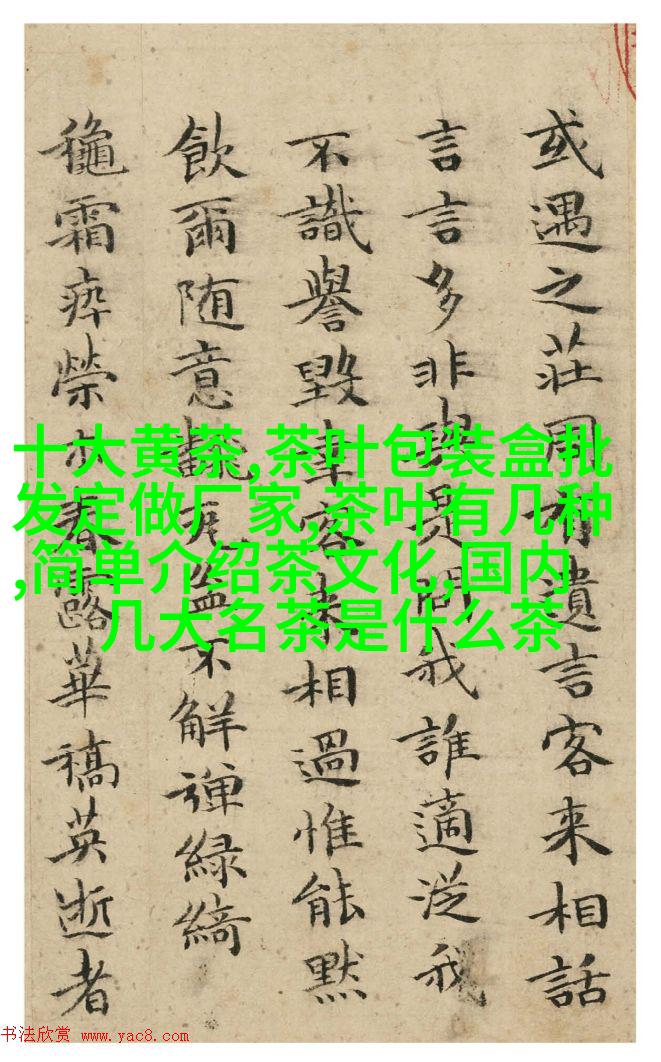 或遇之莊周有遺言客来相話
言言多非與是問我誰適従我
不識譽毀客来相過惟能黙
飲爾随意不解彈緑綺
龝霜瘁榮木春露華稿英逝者
十大黄茶,茶叶包装盒批
发定做厂家,茶叶有几种
,简单介绍茶文化,国内
几大名茶是什么茶
书法欣赏 www.yac8.com